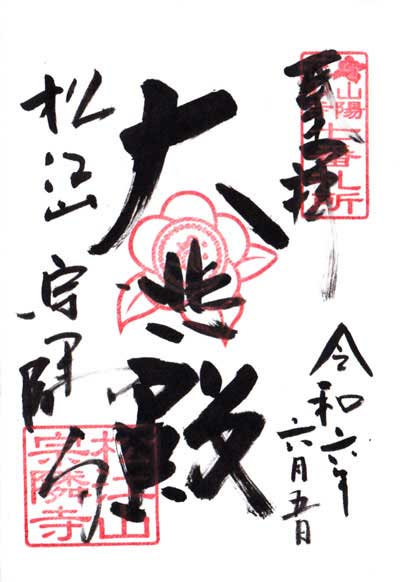 奉拝
山陽
七番札所
令和六年
六月五日
大悲殿
松江山 宗隣寺
松江山
宗隣寺